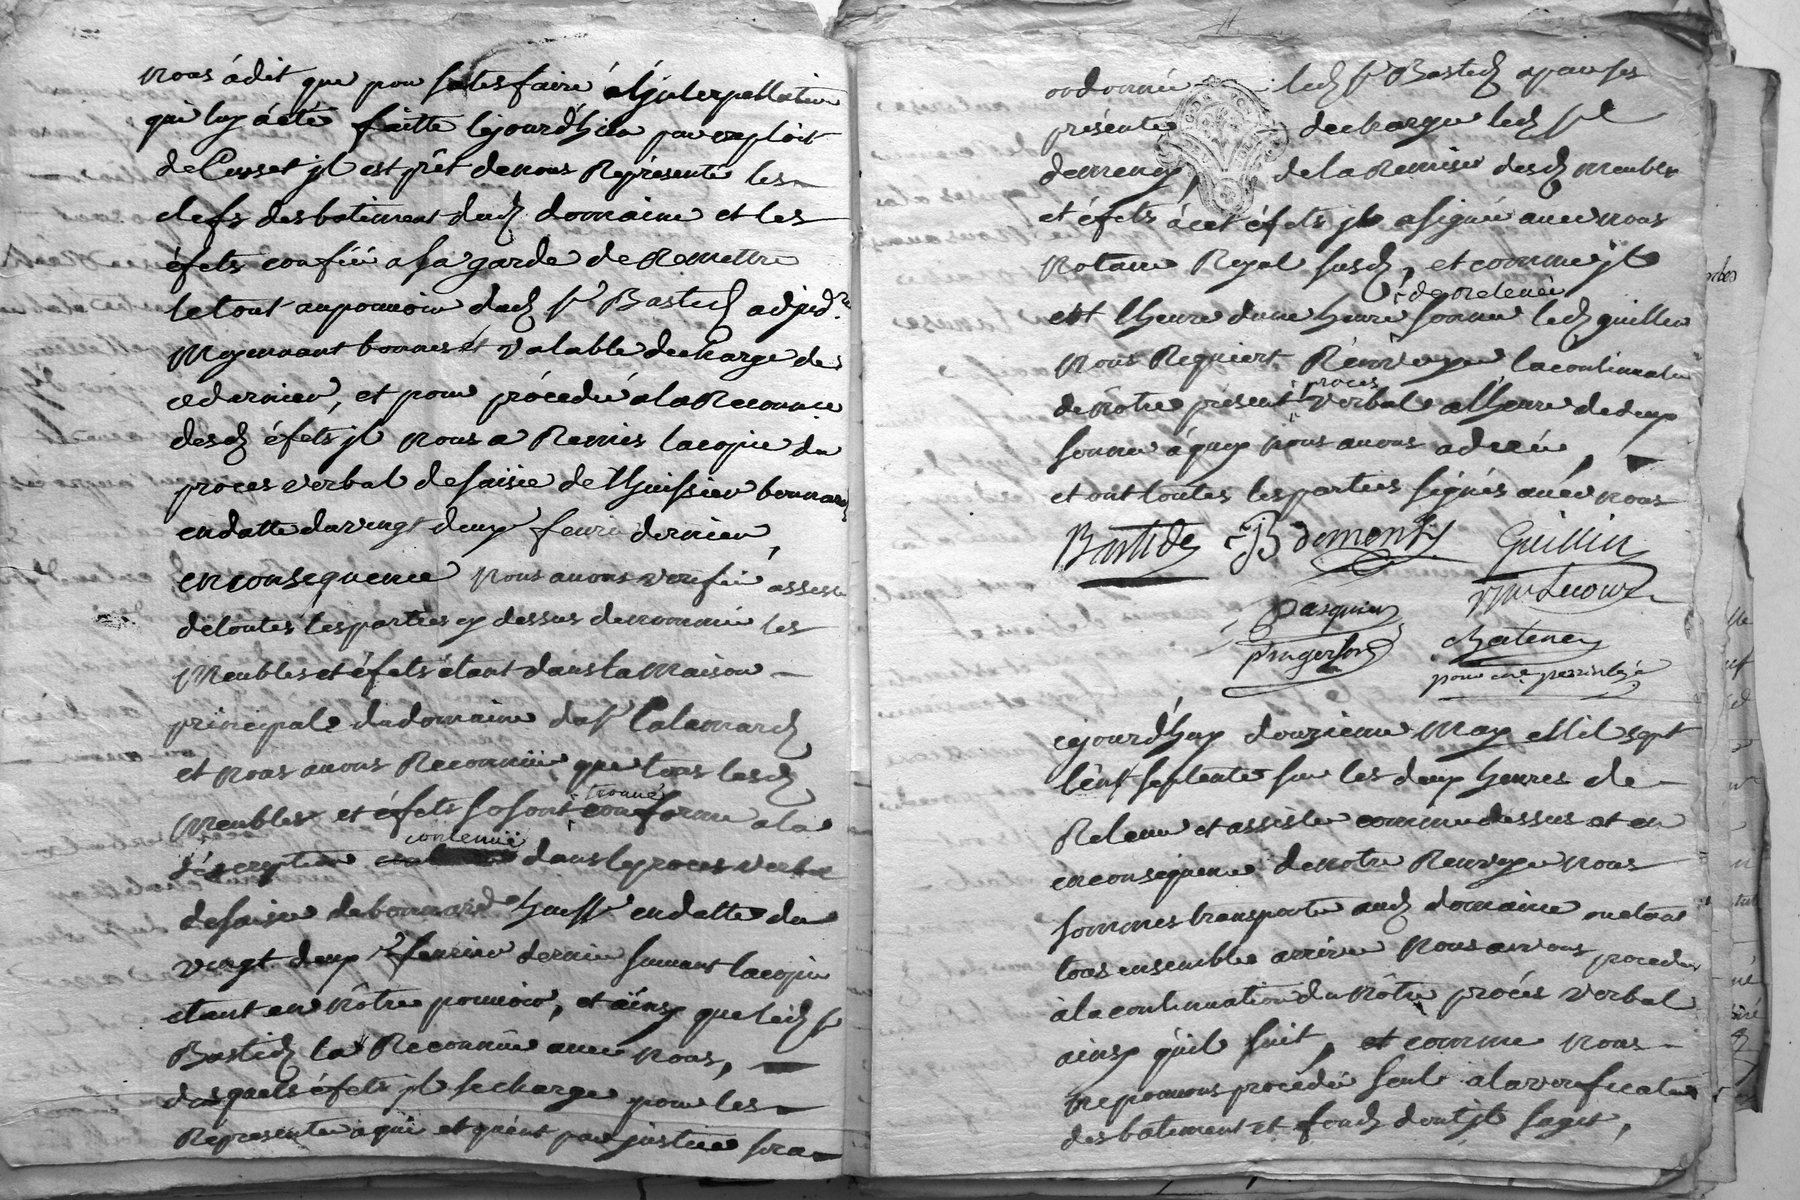 nous á dit que pour satisfaire á l'jnterpellation
qui luy á eté faitte cejourd'huy par exploit
de Cusset jl est prêt de nous Représenté les
clefs des batiment dud. domaine et les
éfets confié a sa garde de Remettre
le tout au pouvoir dud. Sr Bastid adjud.re
Moyennant bonnes et valable decharge de
ce dernier, et pour procédé a la Reconnce
desd. éfets jl nous a Remis la copie du
proces verbal de saisie de l'huissier bonnard
en datte du vingt deux fevrier dernier,
en consequence nous avons verifié assisté
de toutes les parties cy dessus denommée les
Meubles et éfets étant dans la maison
principale du domaine du Sr Calamard
et nous avons Reconnüe que tous lesd.
trouvé
Meubles et éfets se sont conforme a la
contenüe
déscription dans le proces verbal
de saisie de bonnard huissr en datte du
vingt deux fevrier dernier suivant la copie
etant en nôtre pouvoir, et ainsy que led. Sr
Bastid la Reconnüe avec nous,
desquels éfets jl se charge pour les
Représenté a qui et quént par justice sera
ordonnée led. Sr Bastid a par ses
présente decharge led. Sr
demeny de la Remise desd. meubles
et éfets á cet éfets jl a signé avec nous
Notaire Royal susd., et comme jl
de Relevée
est l'heure d'une heure sonnée led. guillin
nous Requiert Renvoyer la continuation
proces
de nôtre présent verbal a l'heure de deux
sonnée á quoy nous avons adérée,
et ont toutes les parties signés avec nous
Bastide Guillin
Pasquier
chatenay
cejourd'huy douzieme May mil sept
cent septente sur les deux heures de
Relevée et assisté comme dessus et en
consequence de notre Renvoye nous
sommes transporté aud. domaine ou etant
tous ensemble arrivé Nous avons procédé
à la continuation du nôtre procés verbal
ainsy qu'il suit, et comme nous
ne pouvons procédé seul a la verification
des bâtiment et fond dont jl sagit,